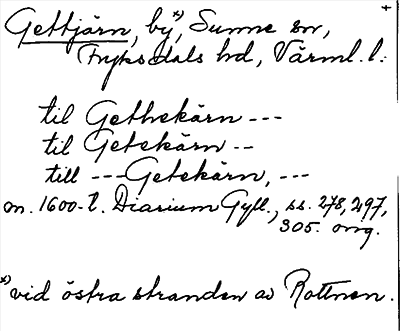 Gettjärn, by*), Sunne sn,
Fryksdals hd, Värml. l.
til Gethekärn ---
til Getekärn --
till --- Getekärn, ---
m. 1600-t. Diarium Gyll., ss. 278, 297,
305. orig.
*) vid östra stranden av Rottnen.